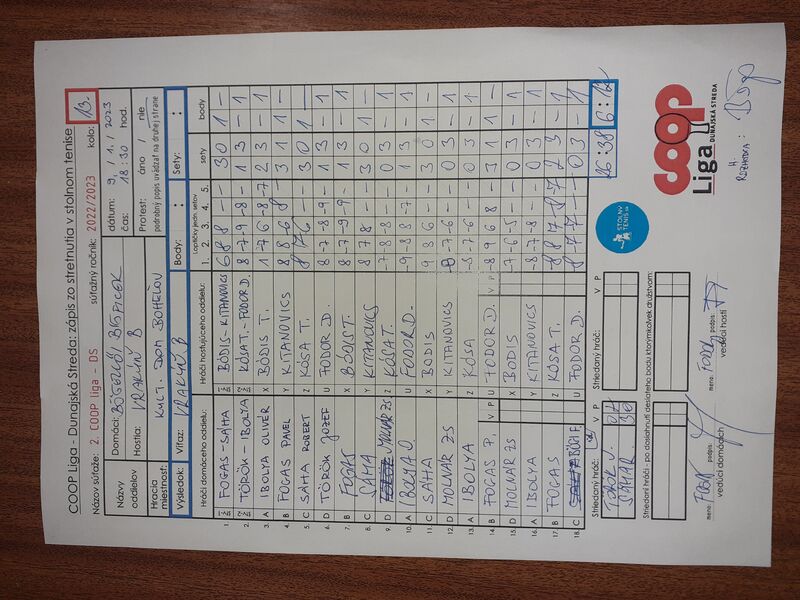 COOP Liga - Dunajská Streda: zápis zo stretnutia v stolnom tenise
Názov súťaže: 2. COOP liga - DS súťažný ročník: 2022/2023 kolo: 13.
Názvy oddielov
Domáci:
Hostia: VRAKÚŇ B
dátum: 9. 1. 2023
čas: 18:30 hod.
Hracia miestnosť: KULT. DOM BOHEĽOV
Protest: áno / nie
podrobný popis uvádzať na druhej strane
Výsledok: Víťaz: VRAKÚŇ B Body: : Sety: :
Hráči domáceho oddielu: Hráči hosťujúceho oddielu: Loptičky jedn. setov sety body
1. 2. 3. 4. 5.
1. FOGAS - SAHA BÓDIS - KITANOVICS 6 8 8 - - 3 0 1 -
2. TÖRÖK - IBOLYA KÓSA T. - FODOR D. 8 -7 -9 -8 - 1 3 - 1
3. A IBOLYA OLIVÉR X BODIS T. 1 -7 6 -8 -7 2 3 - 1
4. B FOGAS PAVEL Y KITANOVICS 8 8 -6 8 - 3 1 1 -
5. C SAHA ROBERT Z KÓSA T. 8 7 6 - - 3 0 1 -
6. D TÖRÖK JOZEF U FODOR D. 8 -7 -8 -9 - 1 3 - 1
7. B FOGAS X BÓDIS T. 8 -7 -9 -9 - 1 3 - 1
8. C SAHA Y KITANOVICS 8 7 8 - - 3 0 1 -
9. D MOLNÁR ZS Z KÓSA T. -7 -8 -8 - - 0 3 - 1
10. A IBOLYA O U FODOR D. -9 -8 8 -7 - 1 3 - 1
11. C SAHA X BODIS 9 8 6 - - 3 0 1 -
12. D MOLNÁR ZS Y KITANOVICS -8 -7 -6 - - 0 3 - 1
13. A IBOLYA Z KÓSA -8 -7 -6 - - 0 3 - 1
V P V P
14. B FOGAS P. U FODOR D. -8 9 6 8 - 3 1 1 -
15. D MOLNÁR ZS X BODIS -7 -6 -5 - - 0 3 - 1
16. A IBOLYA Y KITANOVICS -8 -7 -8 - - 0 3 - 1
17. B FOGAS Z KÓSA T.
18. C U FODOR D. 0 3 - 1
26:38 6:12
Striedaný hráč: V P
Striedaný hráč: V P
TÖRÖK J.
Striedaní hráči - po dosiahnutí desiateho bodu ktorýmkoľvek družstvom:
STOLNÝ TENIS
coop
Liga
DUNAJSKÁ STREDA
meno: FOGAS podpis:
vedúci domácich
meno: FODOR podpis:
vedúci hostí
H. ROZHODCA: